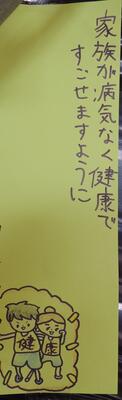 家族が病気なく健康で
すごせますように
健
康